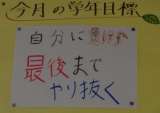 今月の学年目標
自分に負けず
最後まで
やり抜く